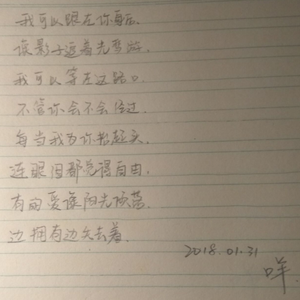 我可以跟在你身后
像影子追着光梦游
我可以等在这路口
不管你会不会经过
每当我为你抬起头
连眼泪都觉得自由
有的爱像阳光倾落
边拥有边失去着
2018.01.31
咩